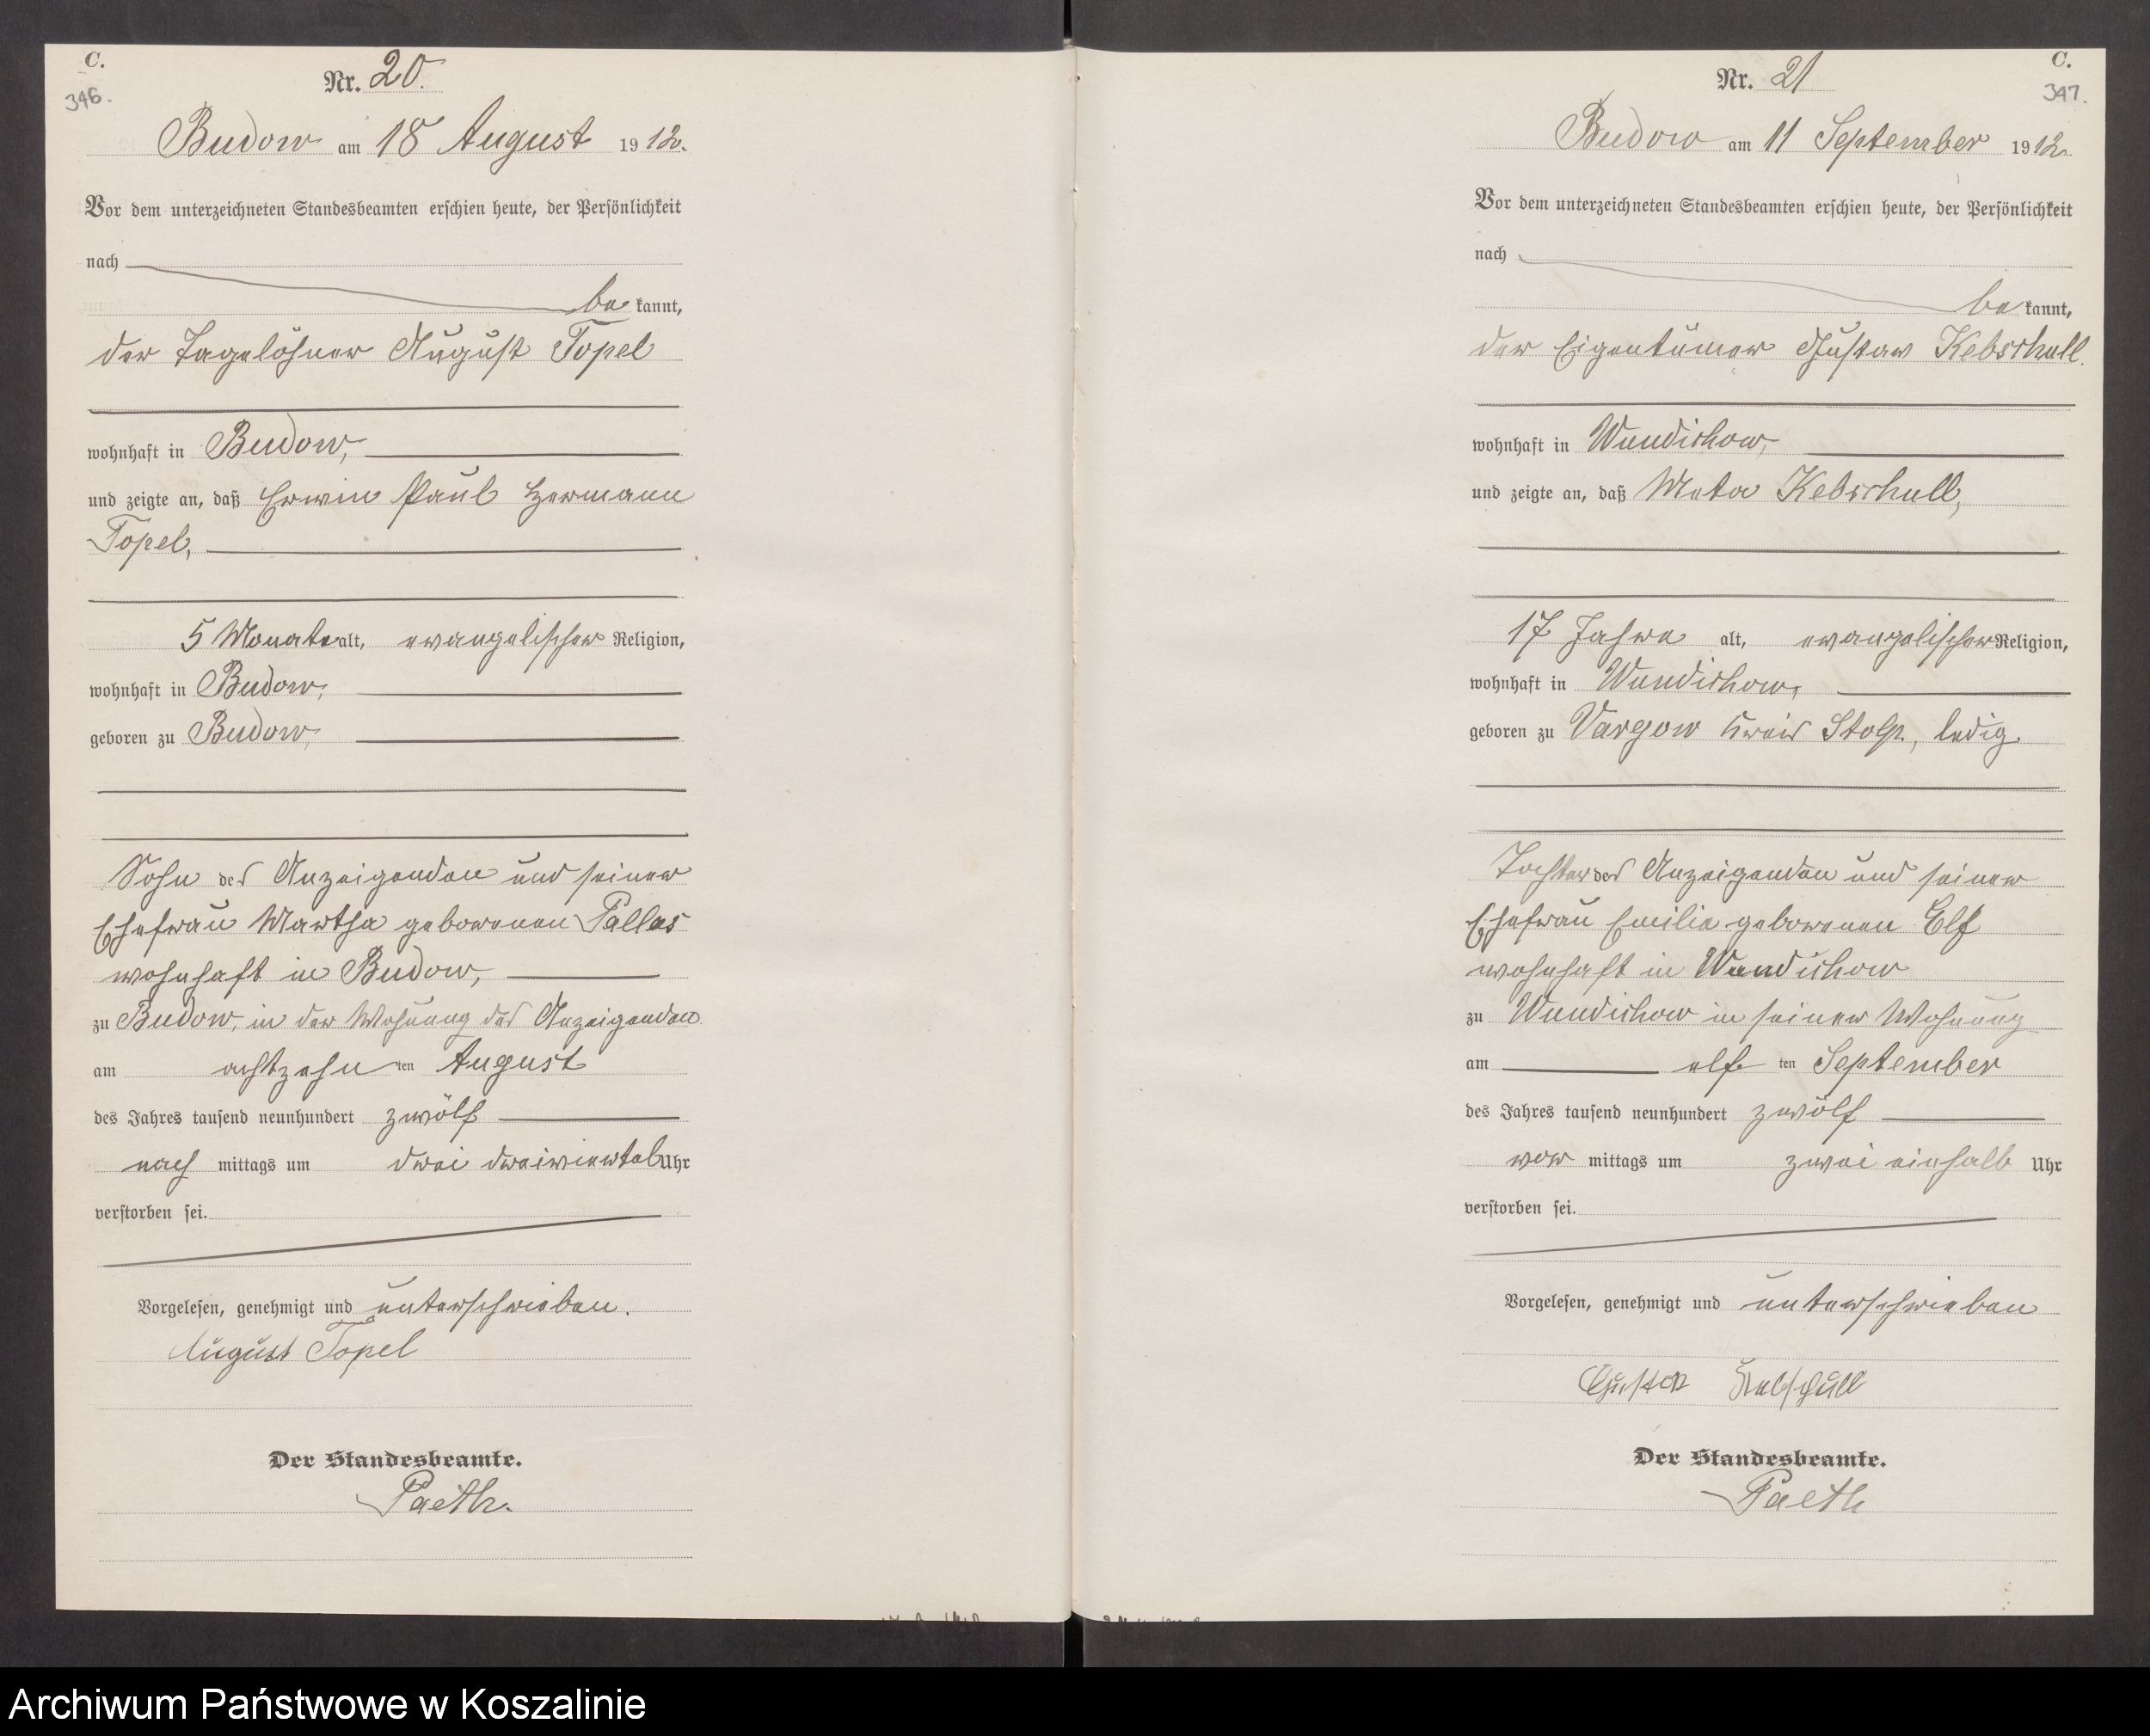 C.
346.
Nr. 20.
Budow am 18 August 1912.
Vor dem unterzeichneten Standesbeamten erschien heute, der Persönlichkeit
nach
be kannt,
der Tagelöhner August Topel
wohnhaft in Budow,
und zeigte an, daß Erwin Paul Hermann
Topel,
5 Monate alt, evangelischer Religion,
wohnhaft in Budow,
geboren zu Budow,
Sohn des Anzeigenden und seiner
Ehefrau Martha geborenen Pallas
wohnhaft in Budow,
zu Budow, in der Wohnung des Anzeigenden
am achtzehn ten August
des Jahres tausend neunhundert zwölf
nach mittags um drei dreiviertel Uhr
verstorben sei.
Vorgelesen, genehmigt und unterschrieben.
August Topel
Der Standesbeamte.
Paeth.
C.
347.
Nr. 21
Budow am 11 September 1912
Vor dem unterzeichneten Standesbeamten erschien heute, der Persönlichkeit
nach
be kannt,
der Eigentümer Gustav Kebschull.
wohnhaft in Wundichow,
und zeigte an, daß Meta Kebschull,
17 Jahre alt, evangelischer Religion,
wohnhaft in Wundichow,
geboren zu Vargow Kreis Stolp, ledig.
Tochter des Anzeigenden und seiner
Ehefrau Emilie geborenen Elf
wohnhaft in Wundichow
zu Wundichow in seiner Wohnung
am elf ten September
des Jahres tausend neunhundert zwölf
vor mittags um zwei einhalb Uhr
verstorben sei.
Vorgelesen, genehmigt und unterschrieben
Gustav Kebschull
Der Standesbeamte.
Paeth
Archiwum Państwowe w Koszalinie